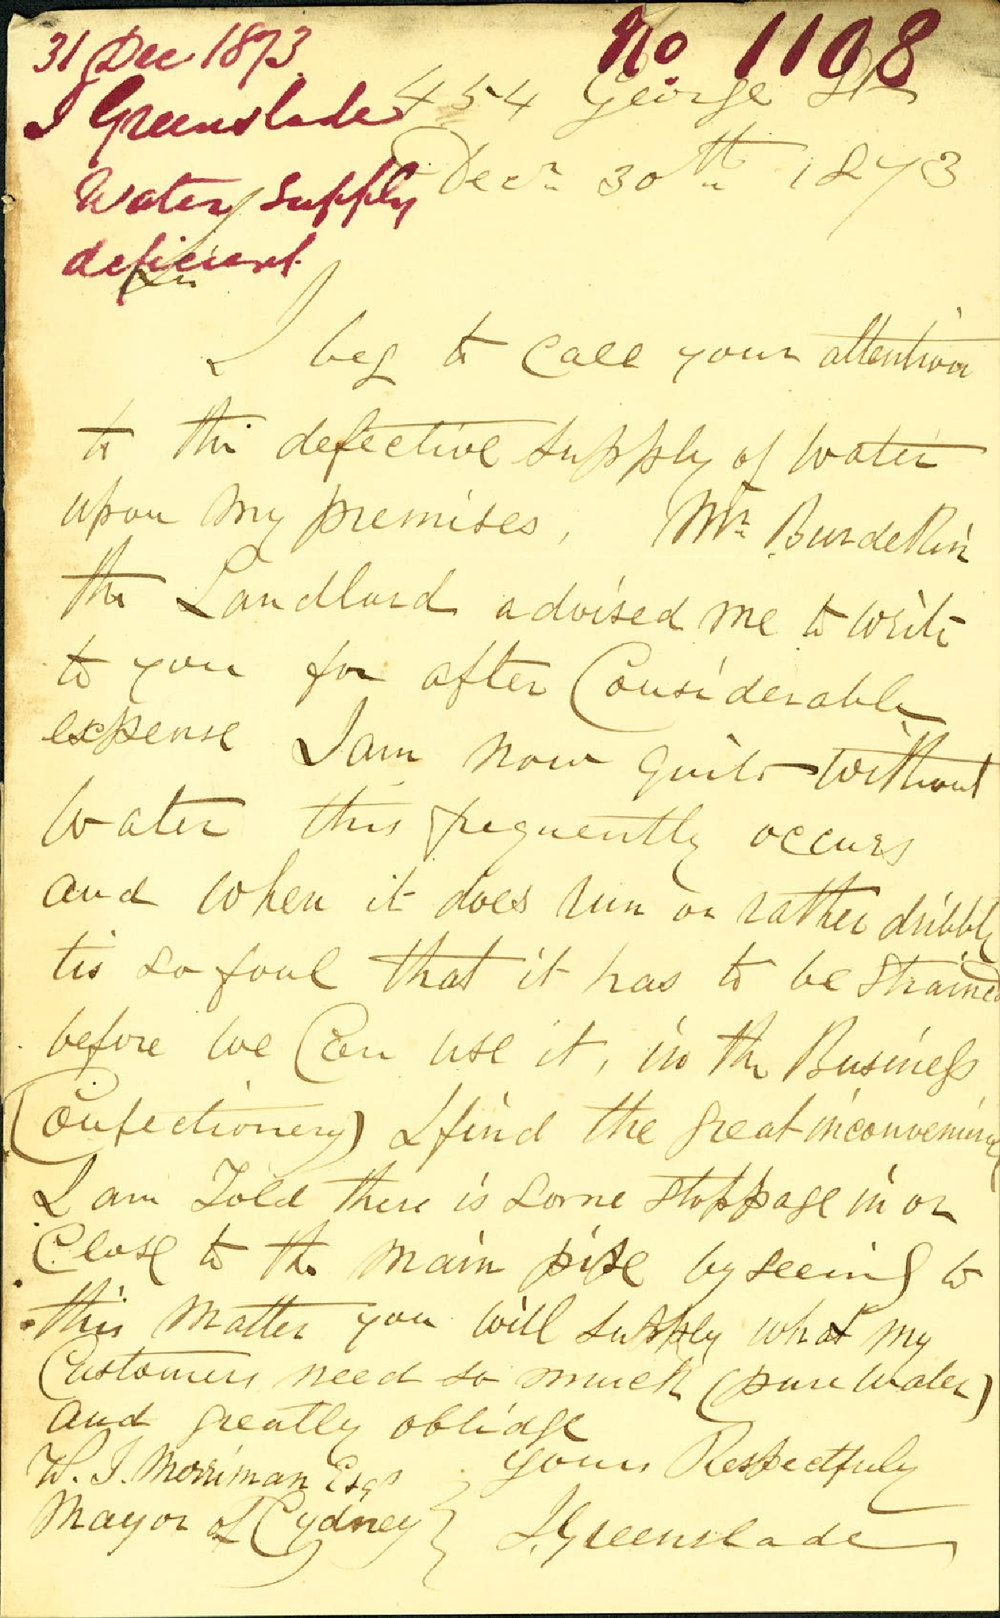 31 Dec 1873.
No. 1108
J Greenslade
Water Supply
deficient
454 George St
Decr 30th 1873
Sir
I beg to call your attention
to the defective supply of water
upon my premises, Mr. Burdekin
the Landlord advised me to write
to you for after Considerable
expense I am now quite without
Water this frequently occurs
and when it does run or rather dribble
tis so foul that it has to be strained
before we Can use it, in the Business
(Confectionery) I find the great inconvenience
I am Told there is some stoppage in or
Close to the Main pipe by seeing to
this Matter you will supply what my
Customers need so much (pure water)
and greatly oblidge
yours Respectfuly
J. Greenslade
W. J. Merriman Esqr
Mayor of Cydney